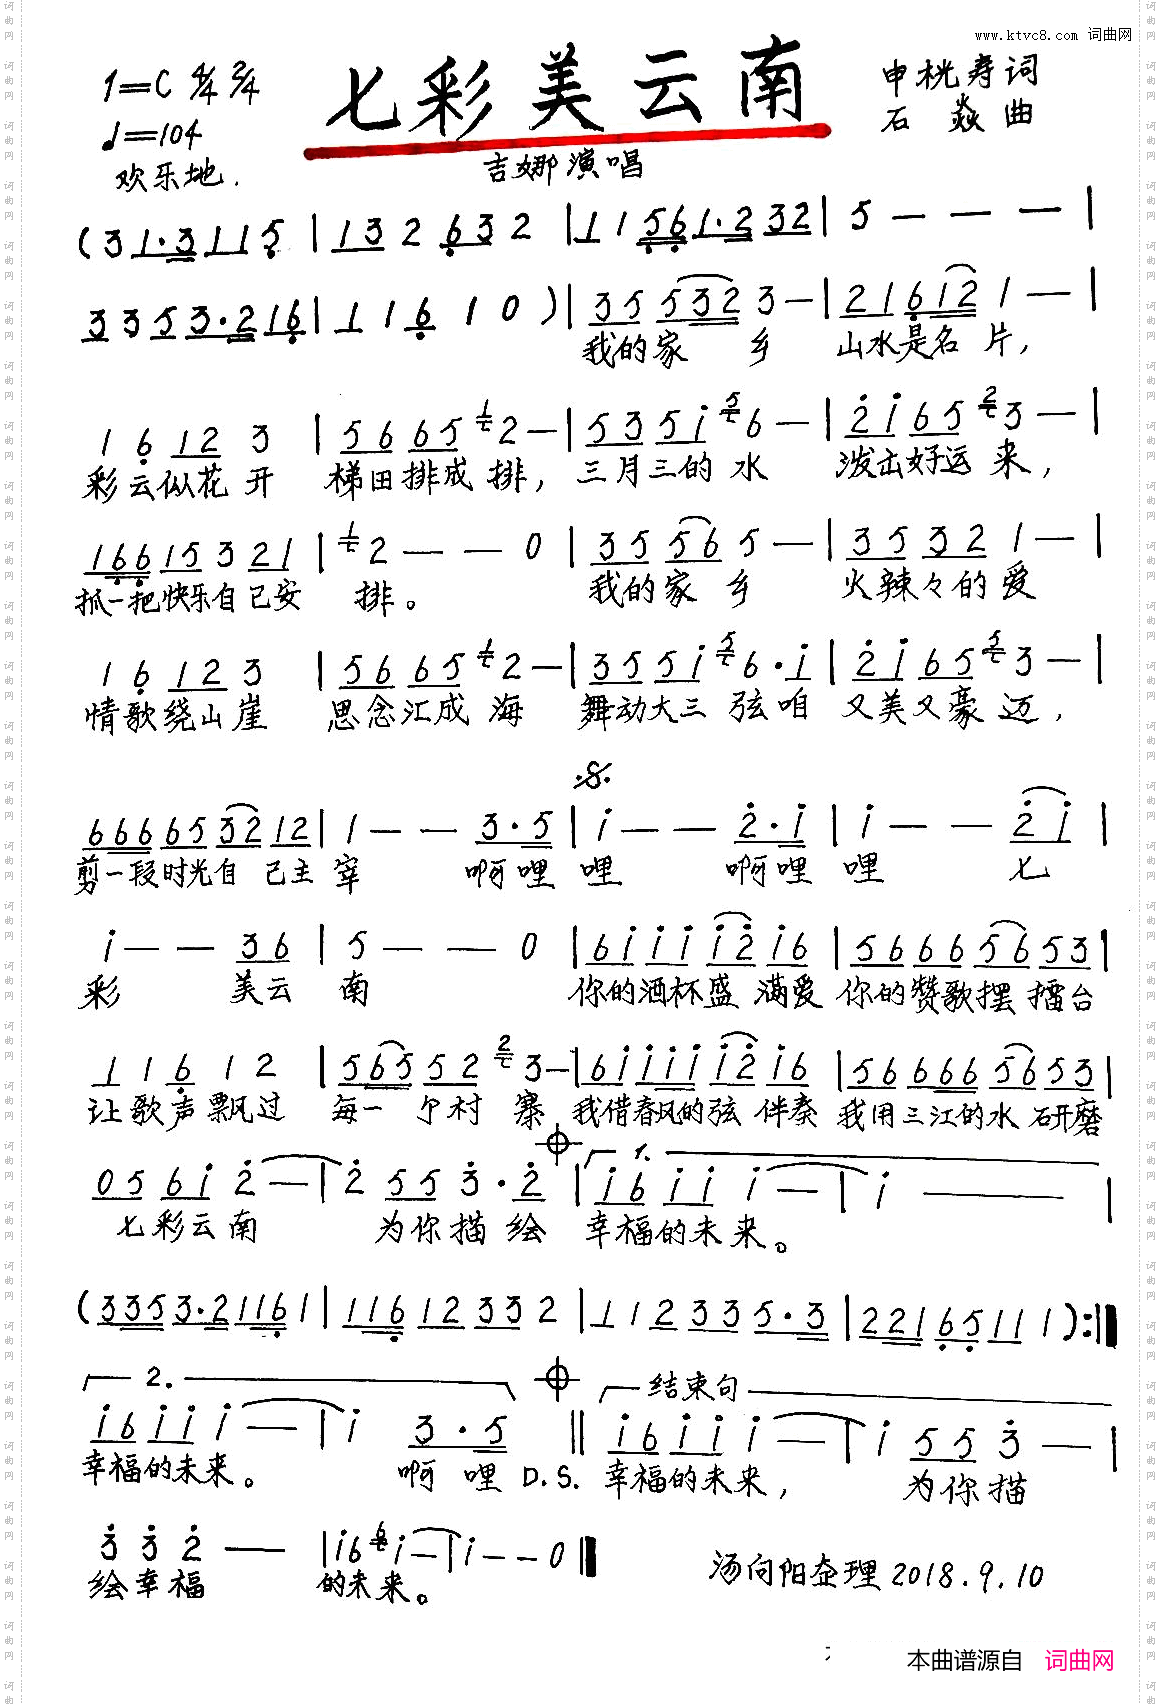 www.ktvc8.com 词曲网
1=C 4/4 2/4
七彩美云南
申桄寿词
♩=104
石焱曲
欢乐地.
吉娜演唱
(3 1·3 1 1 5 | 1 3 2 6 3 2 | 1 1 5 6 1·2 3 2 | 5 — — — |
3 3 5 3·2 1 6 | 1 1 6 1 0 ) | 3 5 5 3 2 3 — | 2 1 6 1 2 1 — |
我的家 乡 山水是名 片,
1 6 1 2 3 | 5 6 6 5 2 — | 5 3 5 i 6 — | 2 i 6 5 3 — |
彩云似花 开 梯田排成 排, 三月三的 水 泼出好运 来,
1 6 6 1 5 3 2 1 | 2 — — 0 | 3 5 5 6 5 — | 3 5 3 2 1 — |
抓一把快乐自己安 排。 我的家 乡 火辣々的 爱
1 6 1 2 3 | 5 6 6 5 2 — | 3 5 5 i 6·i | 2 i 6 5 3 — |
情歌绕山崖 思念汇成 海 舞动大三 弦咱 又美又豪 迈,
6 6 6 6 5 3 2 1 2 | 1 — — 3·5 | i — — 2·i | i — — 2 i |
剪一段时光自 己主 宰 啊哩 哩 啊哩 哩 七
i — — 3 6 | 5 — — 0 | 6 i i i i 2 i 6 | 5 6 6 6 5 6 5 3 |
彩 美云 南 你的酒杯盛 满爱 你的赞歌摆 擂台
1 1 6 1 2 | 5 6 5 5 2 3 — | 6 i i i i i 2 i 6 | 5 6 6 6 6 5 6 5 3 |
让歌声飘过 每一 个村 寨 我借春风的弦 伴奏 我用三江的水 研磨
1.
0 5 6 i 2 — | 2 5 5 3·2 | i 6 i i i — | i ——— |
七彩云南 为你描 绘 幸福的未来。
(3 3 5 3·2 1 1 6 1 | 1 1 6 1 2 3 3 2 | 1 1 2 3 3 5·3 | 2 2 1 6 5 1 1 1 ) :||
2. 结束句
i 6 i i i — | i 3·5 || i 6 i i i — | i 5 5 3 — |
幸福的未来。 啊 哩 D.S. 幸福的未来, 为你描
3 3 2 — | i 6 i — | i — — 0 ||
绘幸福 的未来。
汤向阳整理 2018.9.10
本曲谱源自 词曲网